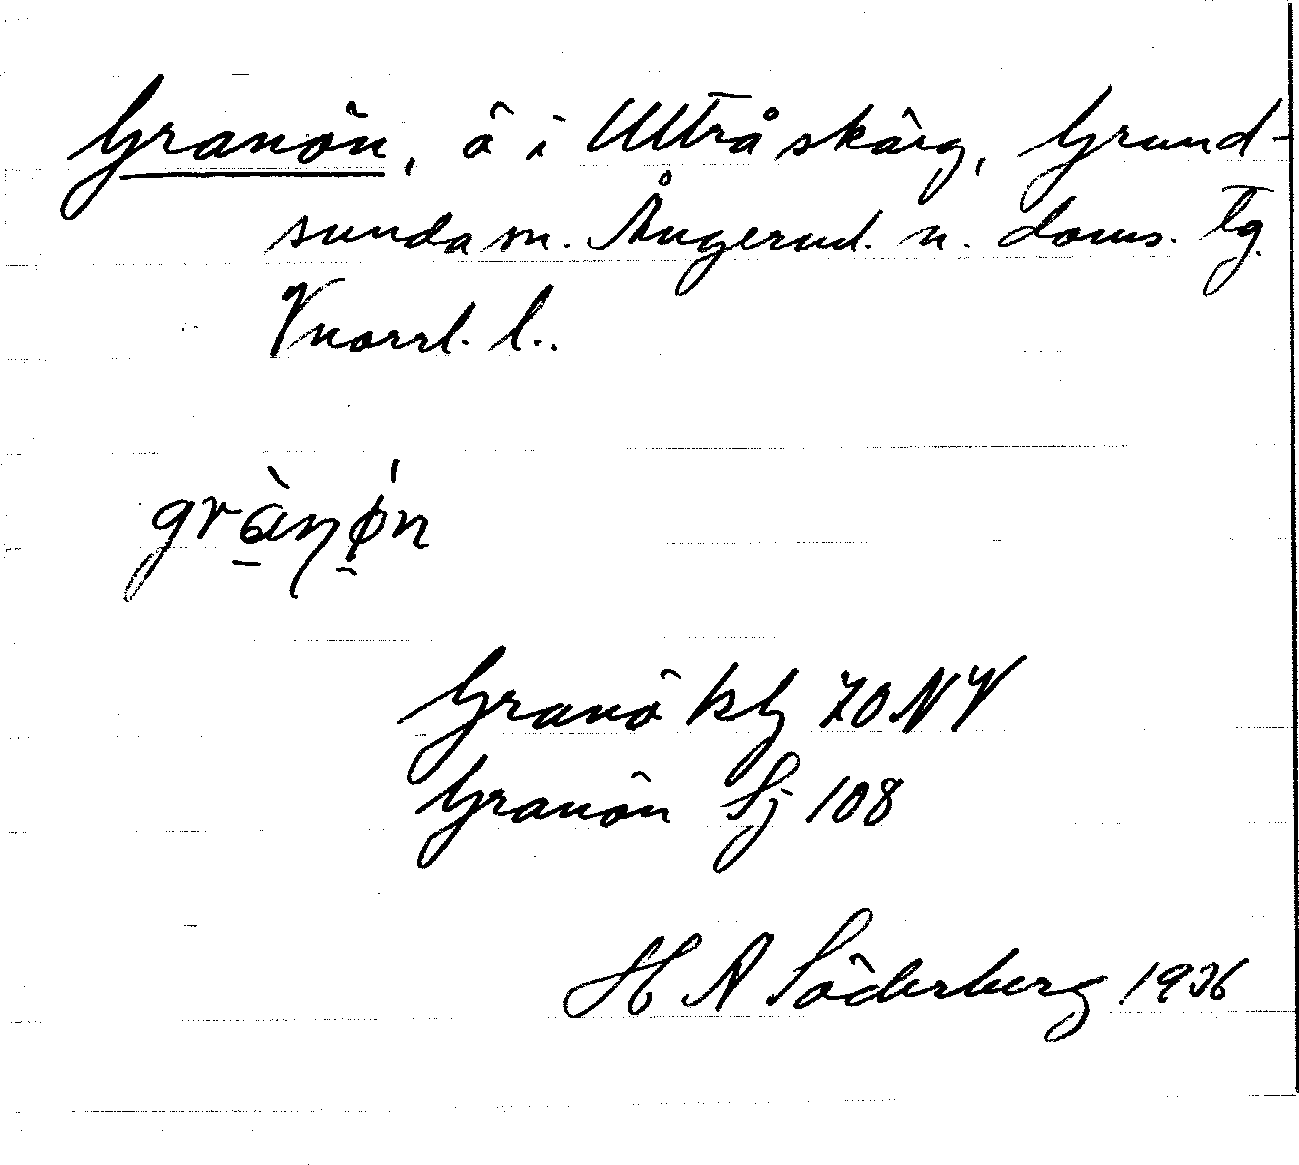 Granön, ö i Ulvö skärg, Grund-
sunda sn. Ångerml. n. doms. Tg.
Vnorrl. l..
grànǿn
Granö ktj 70 NV
Granön Sj 108
H A Söderberg 1936